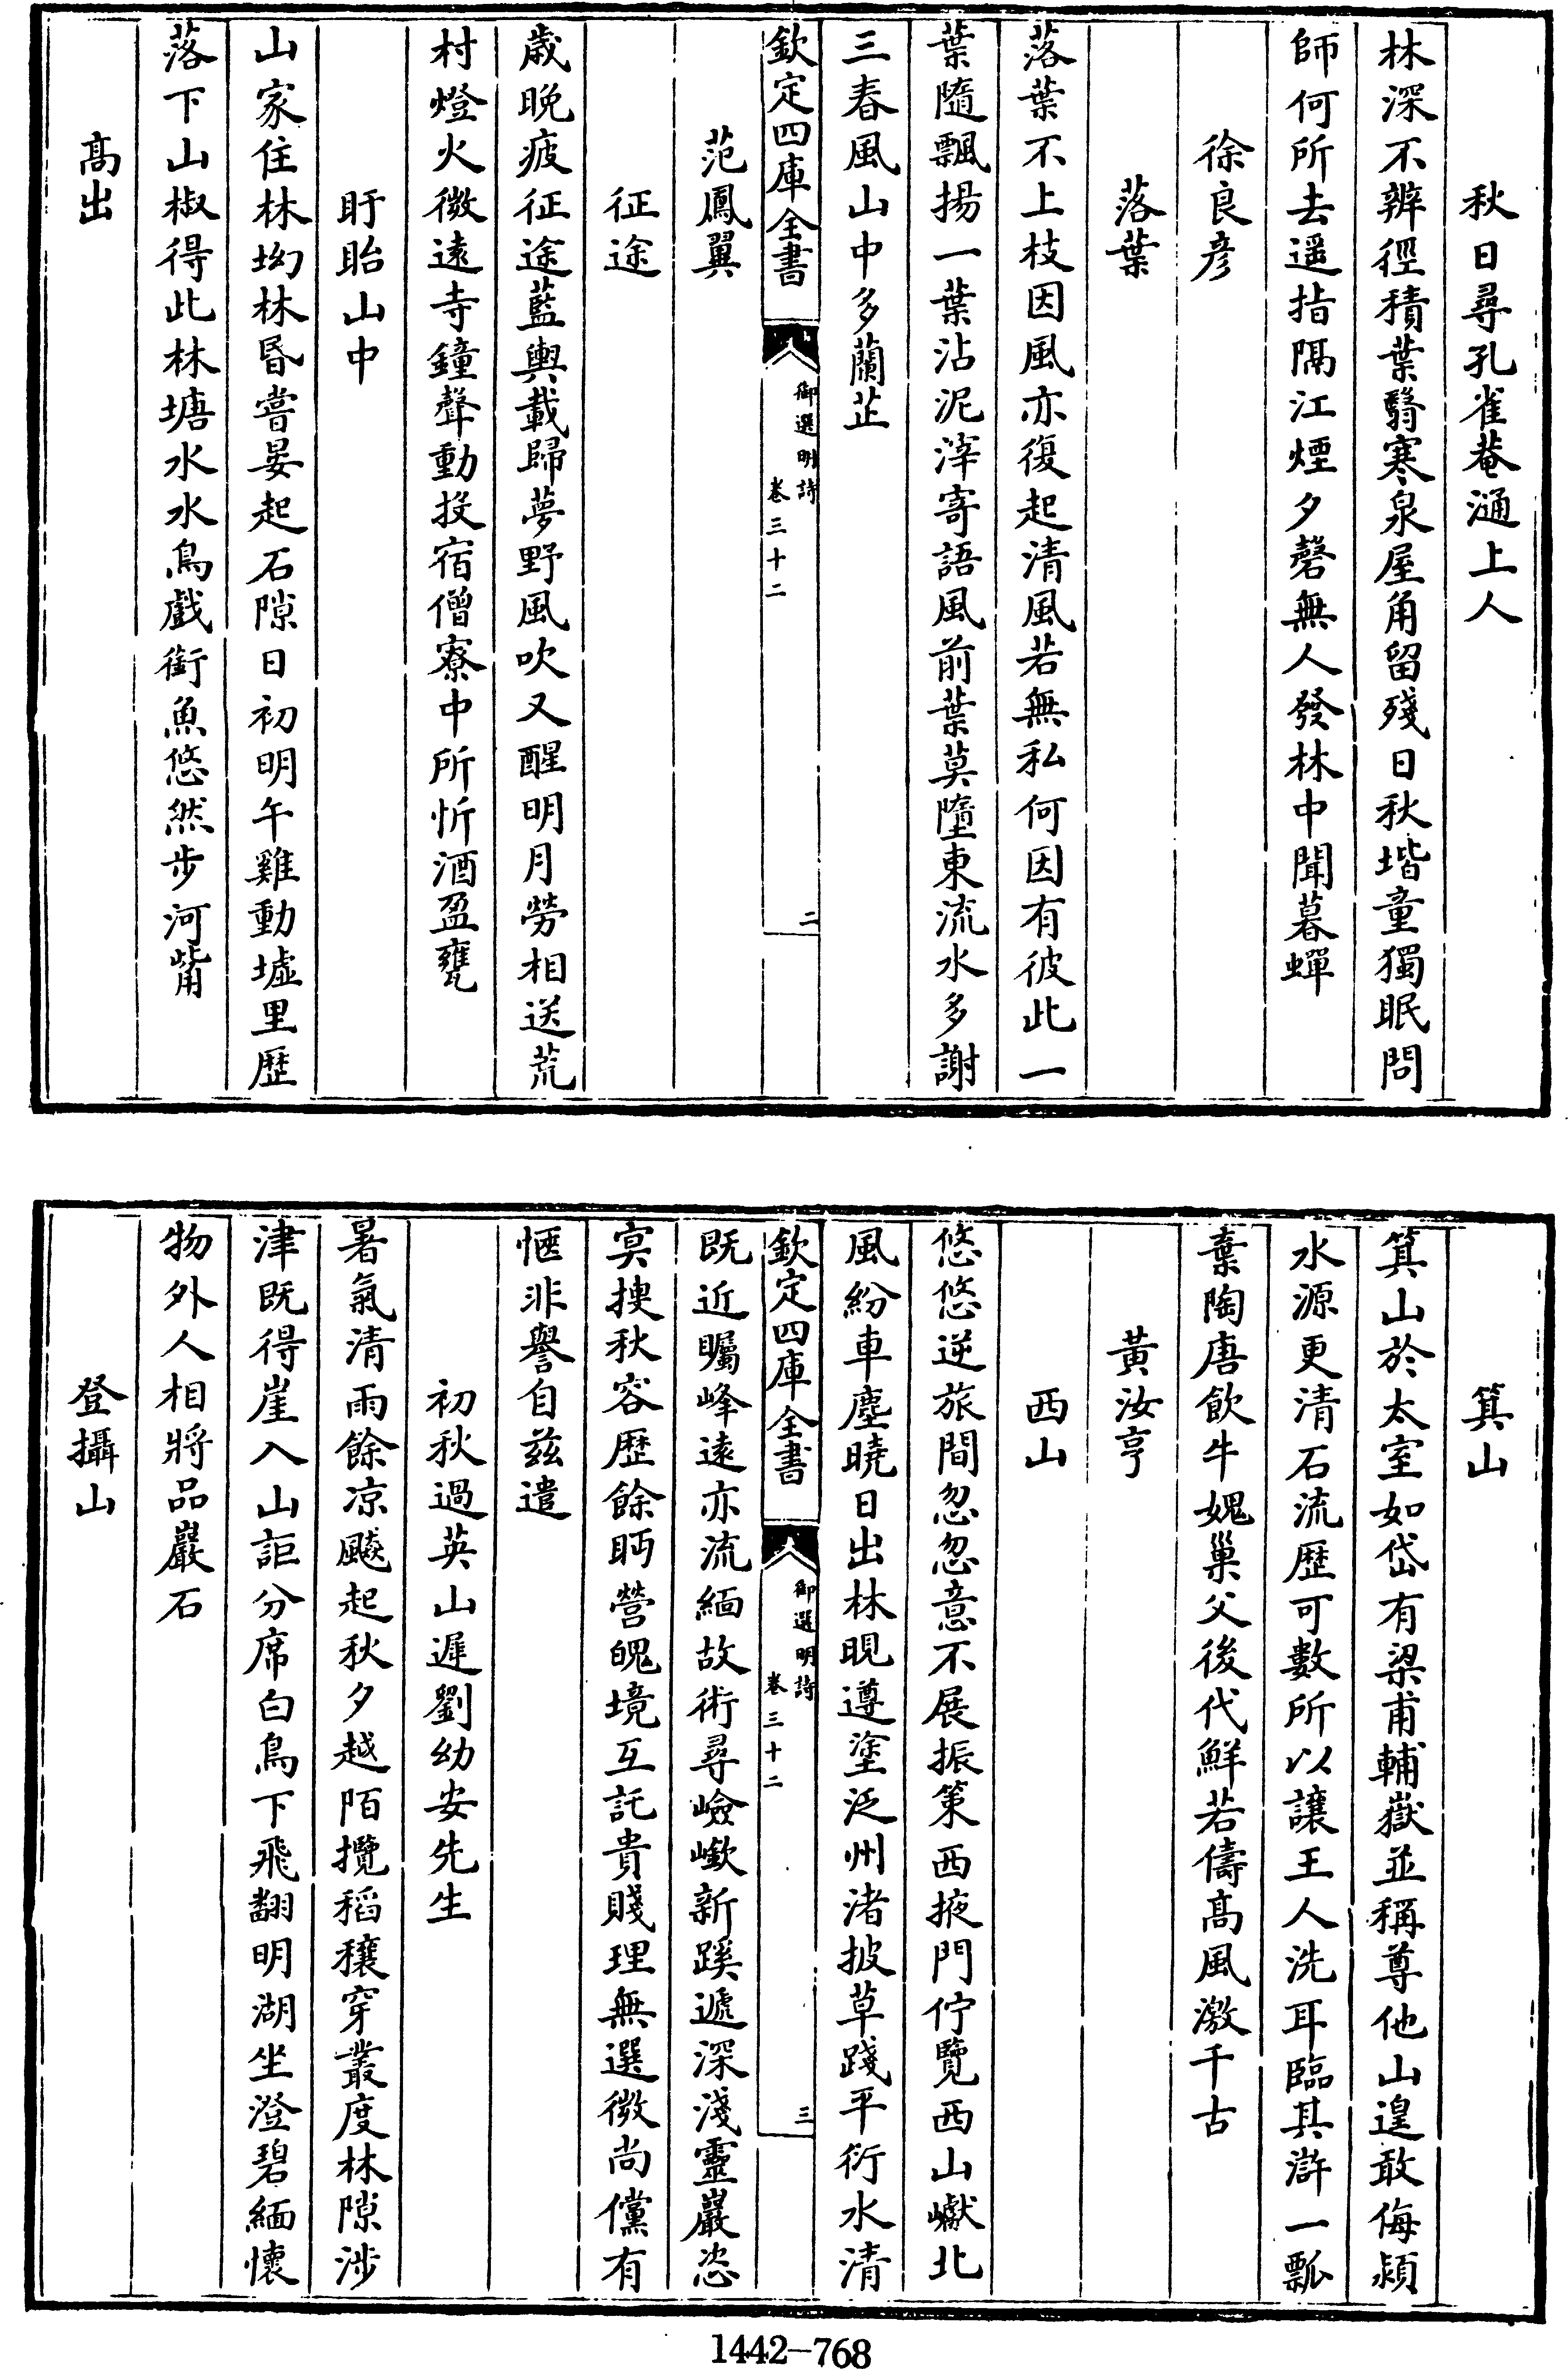 秋日尋孔雀菴通上人
林深不辨徑積葉翳寒泉屋角留殘日秋堦童獨眠問
師何所去遥指隔江煙夕磬無人發林中聞暮蟬
徐良彦
落葉
落葉不上枝因風亦復起清風若無私何因有彼此一
葉隨飄揚一葉沾泥滓寄語風前葉莫墮東流水多謝
三春風山中多蘭芷
欽定四庫全書
御選明詩
卷三十二
二
范鳳翼
征途
歲晚疲征途藍輿載歸夢野風吹又醒明月勞相送荒
村燈火微遠寺鐘聲動投宿僧寮中所忻酒盈甕
盱眙山中
山家住林坳林昏嘗晏起石隙日初明午雞動墟里歷
落下山椒得此林塘水水鳥戲銜魚悠然步河觜
高出
箕山
箕山於太室如岱有梁甫輔嶽並稱尊他山遑敢侮潁
水源更清石流歷可數所以讓王人洗耳臨其滸一瓢
棄陶唐飲牛媿巢父後代鮮若儔高風激千古
黃汝亨
西山
悠悠逆旅間忽忽意不展振策西掖門佇覽西山巘北
風紛車塵曉日出林晛遵塗泛州渚披草踐平衍水清
欽定四庫全書
御選明詩
卷三十二
三
既近矚峰遠亦流緬故術尋嶮巇新蹊遞深淺靈巖恣
冥搜秋容歷餘眄營魄境互託貴賤理無選微尚儻有
愜非譽自兹遣
初秋過英山遲劉幼安先生
暑氣清雨餘凉颸起秋夕越陌攬稻穰穿叢度林隙涉
津既得崖入山詎分席白鳥下飛翻明湖坐澄碧緬懷
物外人相將品巖石
登攝山
1442-768